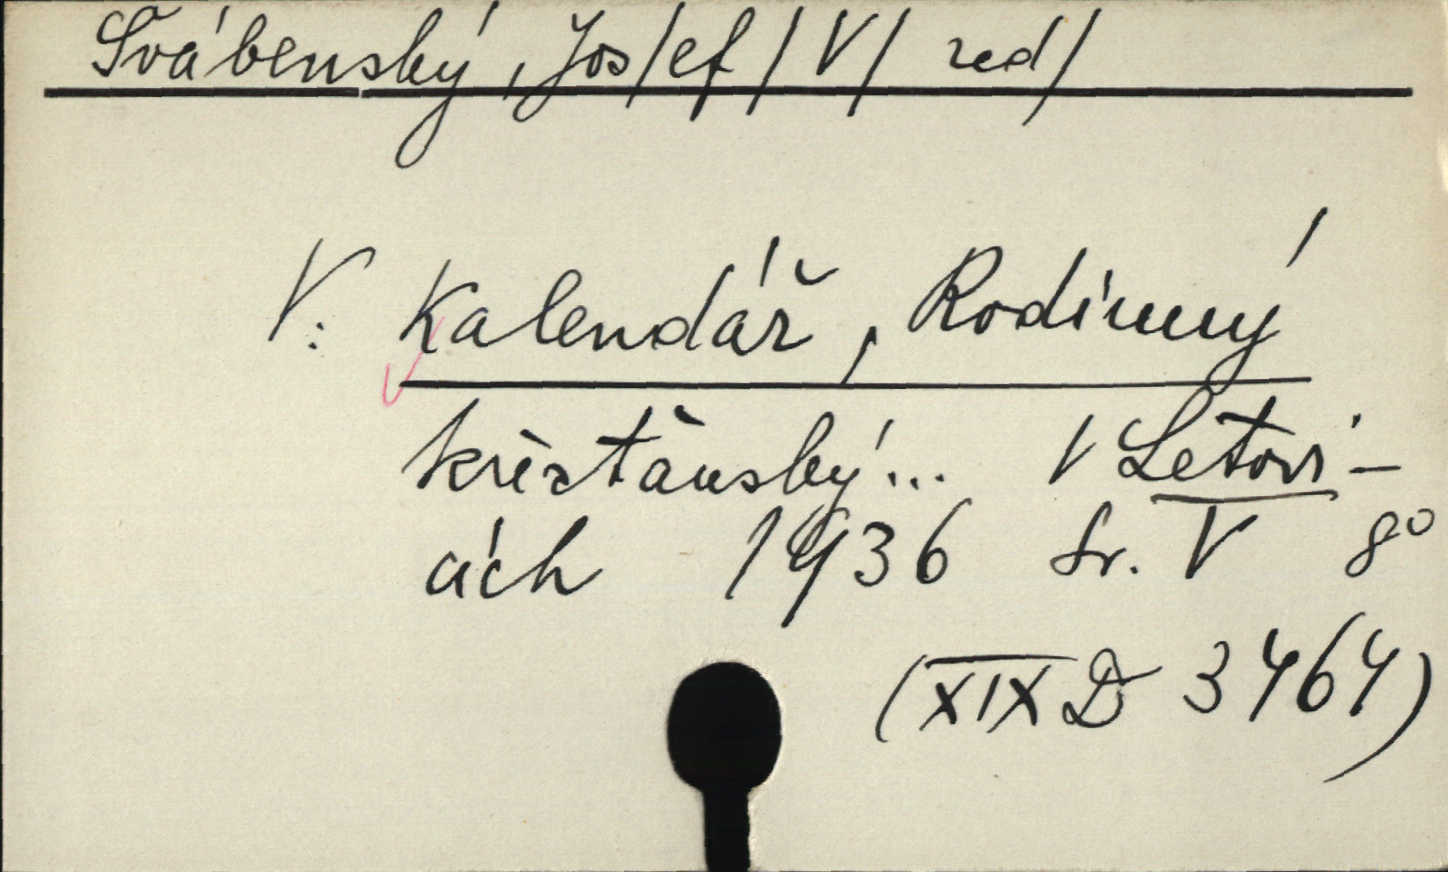 Svábenský, Jos/ef/ V/ red/
V: Kalendář, Rodinný
křesťanský... V Letovi-
cích 1936 Sv. V 8°
(XIX D 3464)